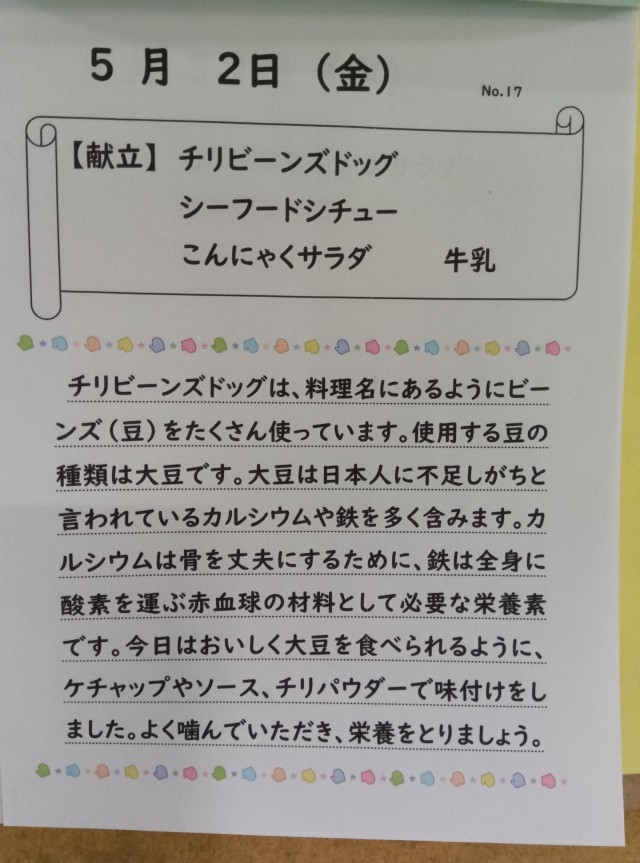 5月 2日（金）
No.17
【献立】 チリビーンズドッグ
シーフードシチュー
こんにゃくサラダ 牛乳
チリビーンズドッグは、料理名にあるようにビー
ンズ（豆）をたくさん使っています。使用する豆の
種類は大豆です。大豆は日本人に不足しがちと
言われているカルシウムや鉄を多く含みます。カ
ルシウムは骨を丈夫にするために、鉄は全身に
酸素を運ぶ赤血球の材料として必要な栄養素
です。今日はおいしく大豆を食べられるように、
ケチャップやソース、チリパウダーで味付けをし
ました。よく噛んでいただき、栄養をとりましょう。